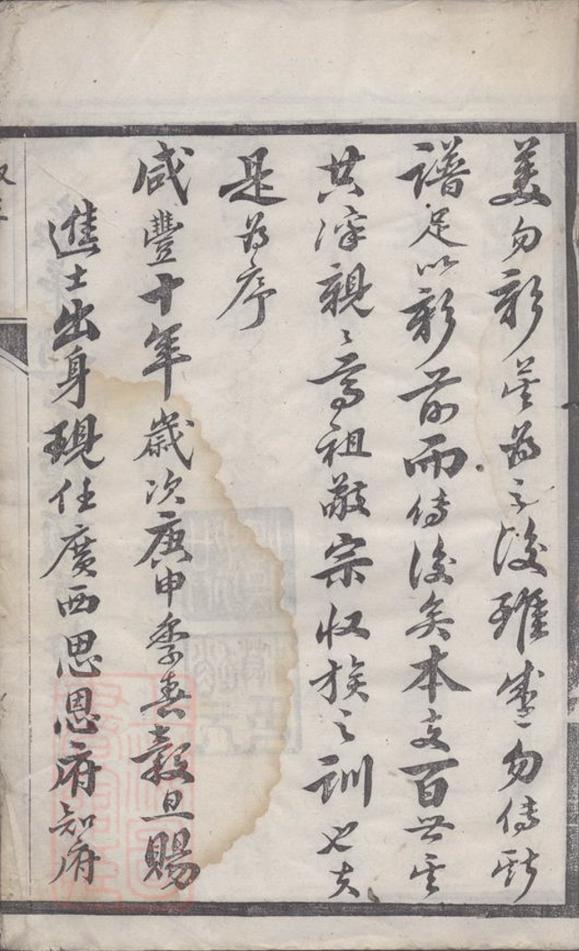 美勿彰莫為之後雖盛勿傳斯
譜足以彰前而傳後矣本支百世
共深親〻尊祖敬宗收族之訓也夫
是為序
咸豐十年歲次庚申季春穀旦賜
進士出身現任廣西思恩府知府